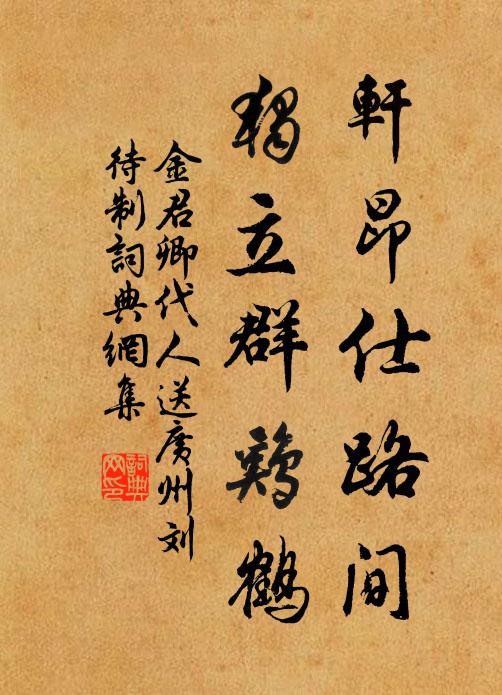 軒昂仕路間
獨立群鷄鶴
金君卿代人送廣州刘
待制詞典網集
詞典
网印